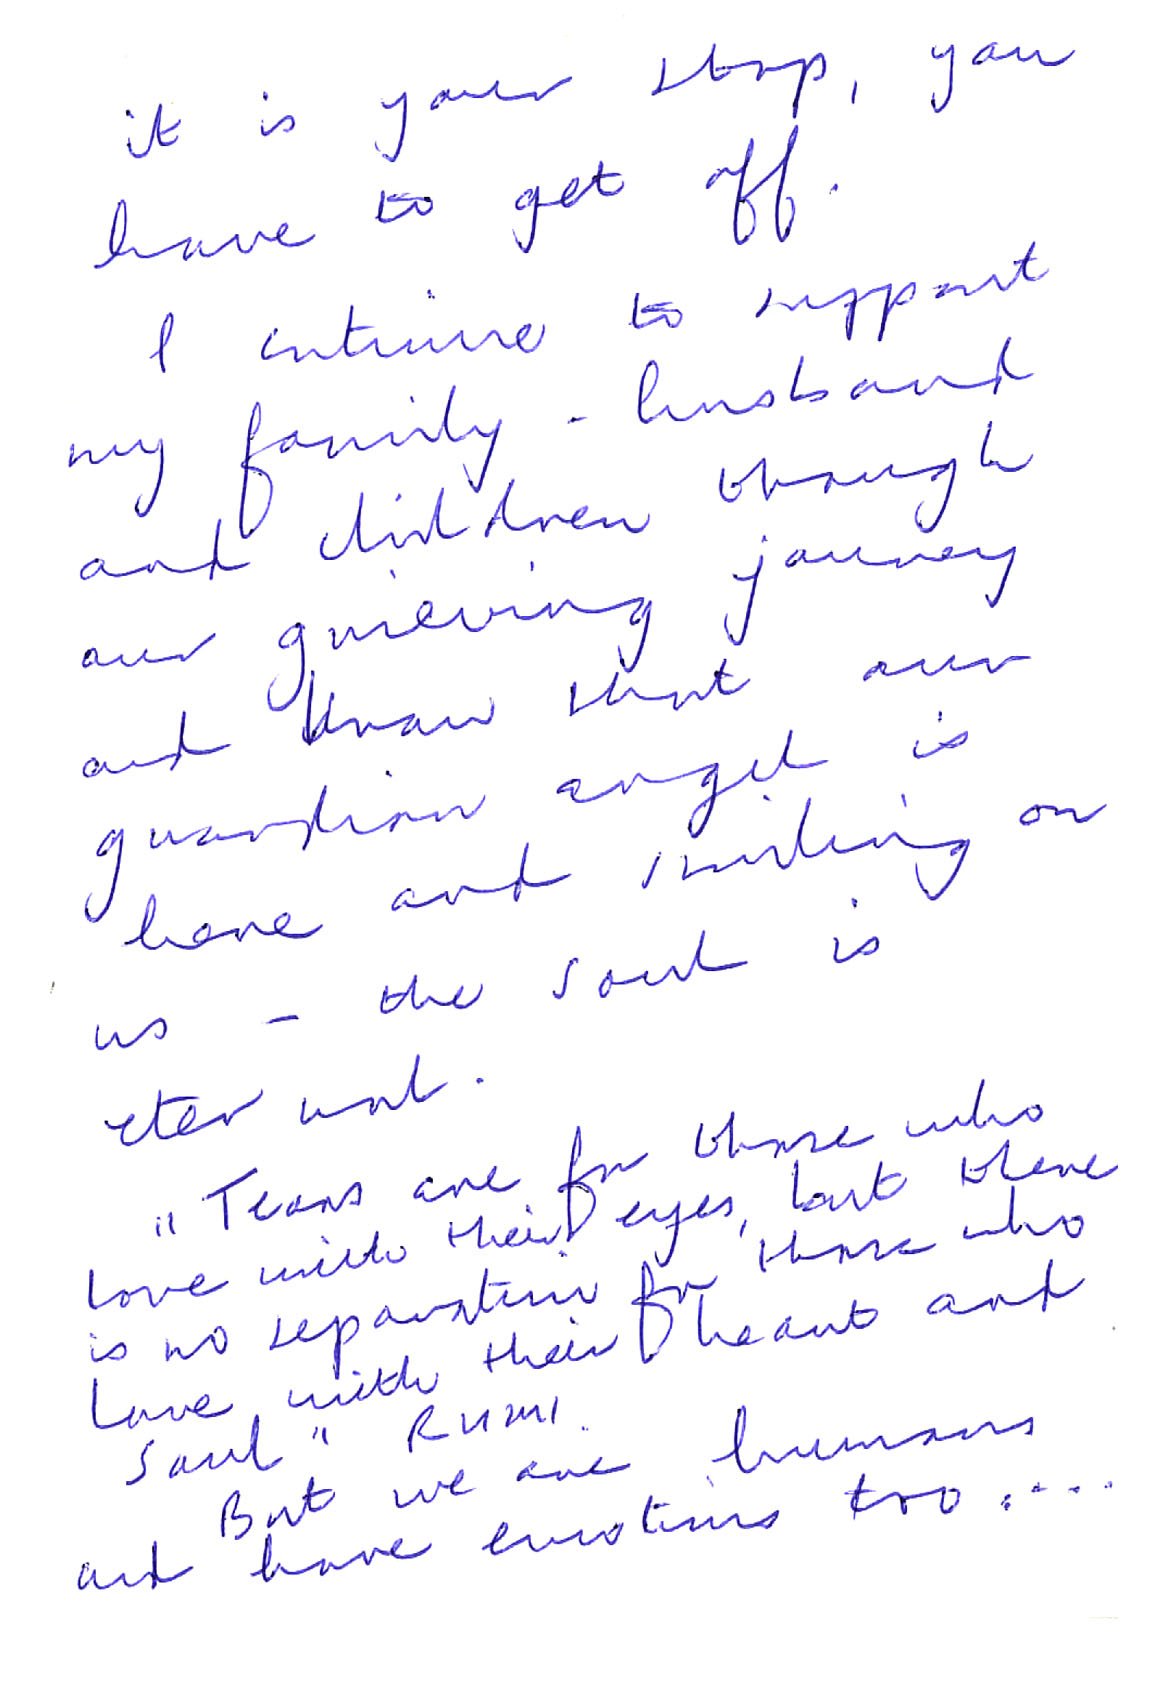 it is your stop, you
have to get off.
I continue to support
my family - husband
and children through
our grieving journey
and know that our
guardian angel is
here and smiling on
us - the soul is
eternal.
"Tears are for those who
love with their eyes, but there
is no separation for those who
love with their heart and
soul" RUMI.
But we are humans
and have emotions too....